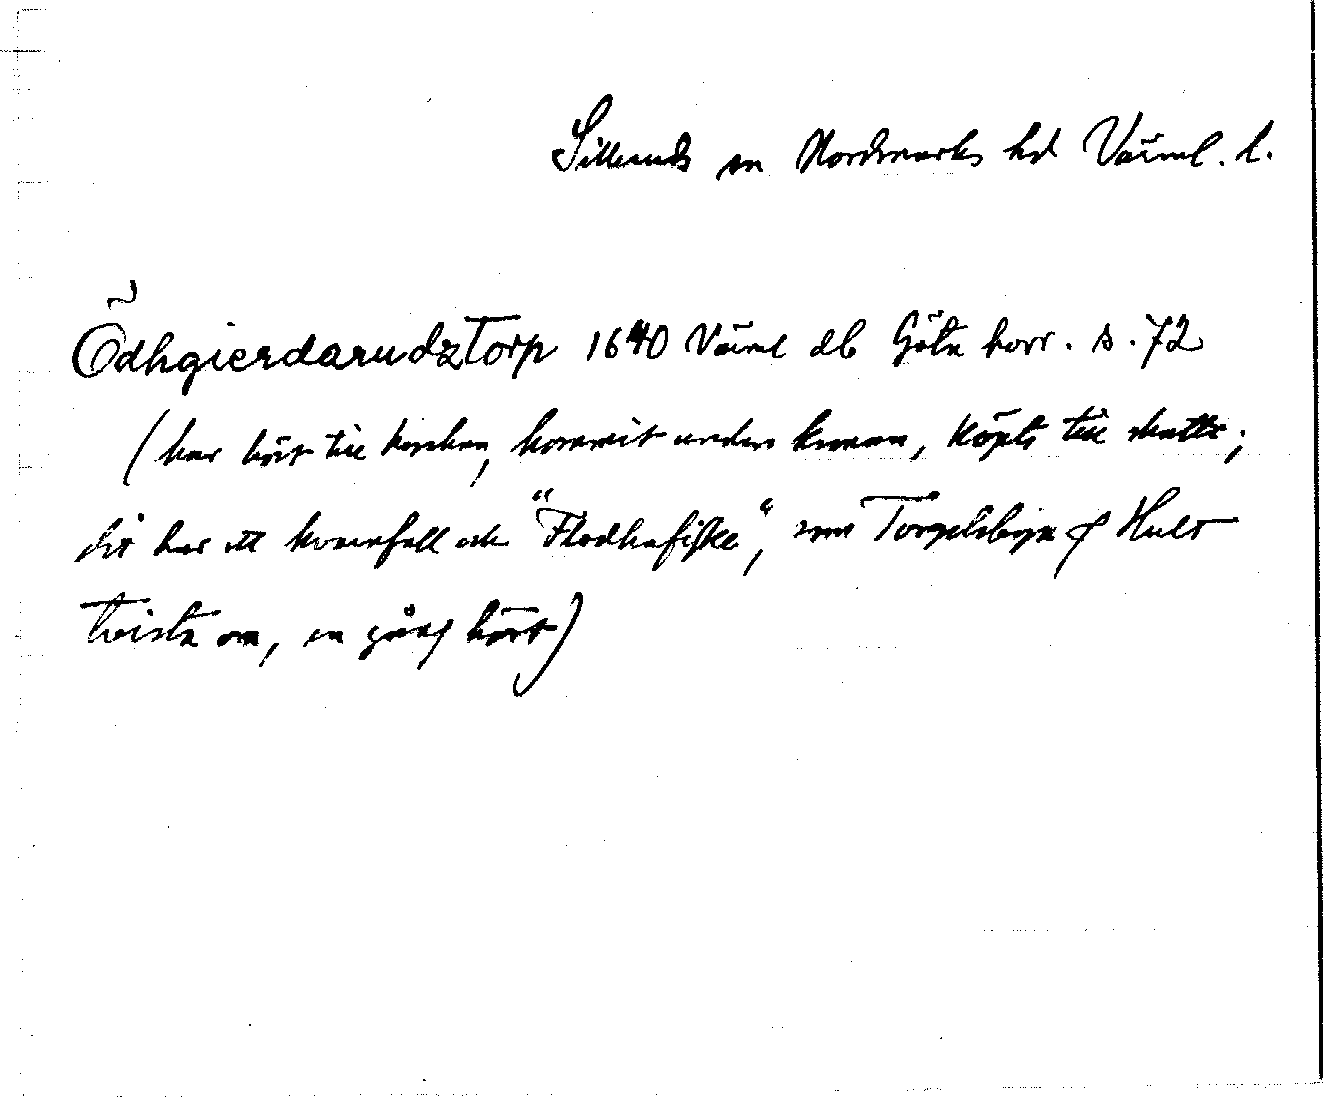 Sillerud sn Nordmarks hd Värml. l.
Ödhgierdarudztorp 1640 Värml db Göta hovr. s. 72
(har hört till kyrkan, kommit under kronan, köpts till skatte;
hit har ett kvarnfall och "Flodhafiske", som Torgelsbyn & Hult
tvista om, en gång hört)